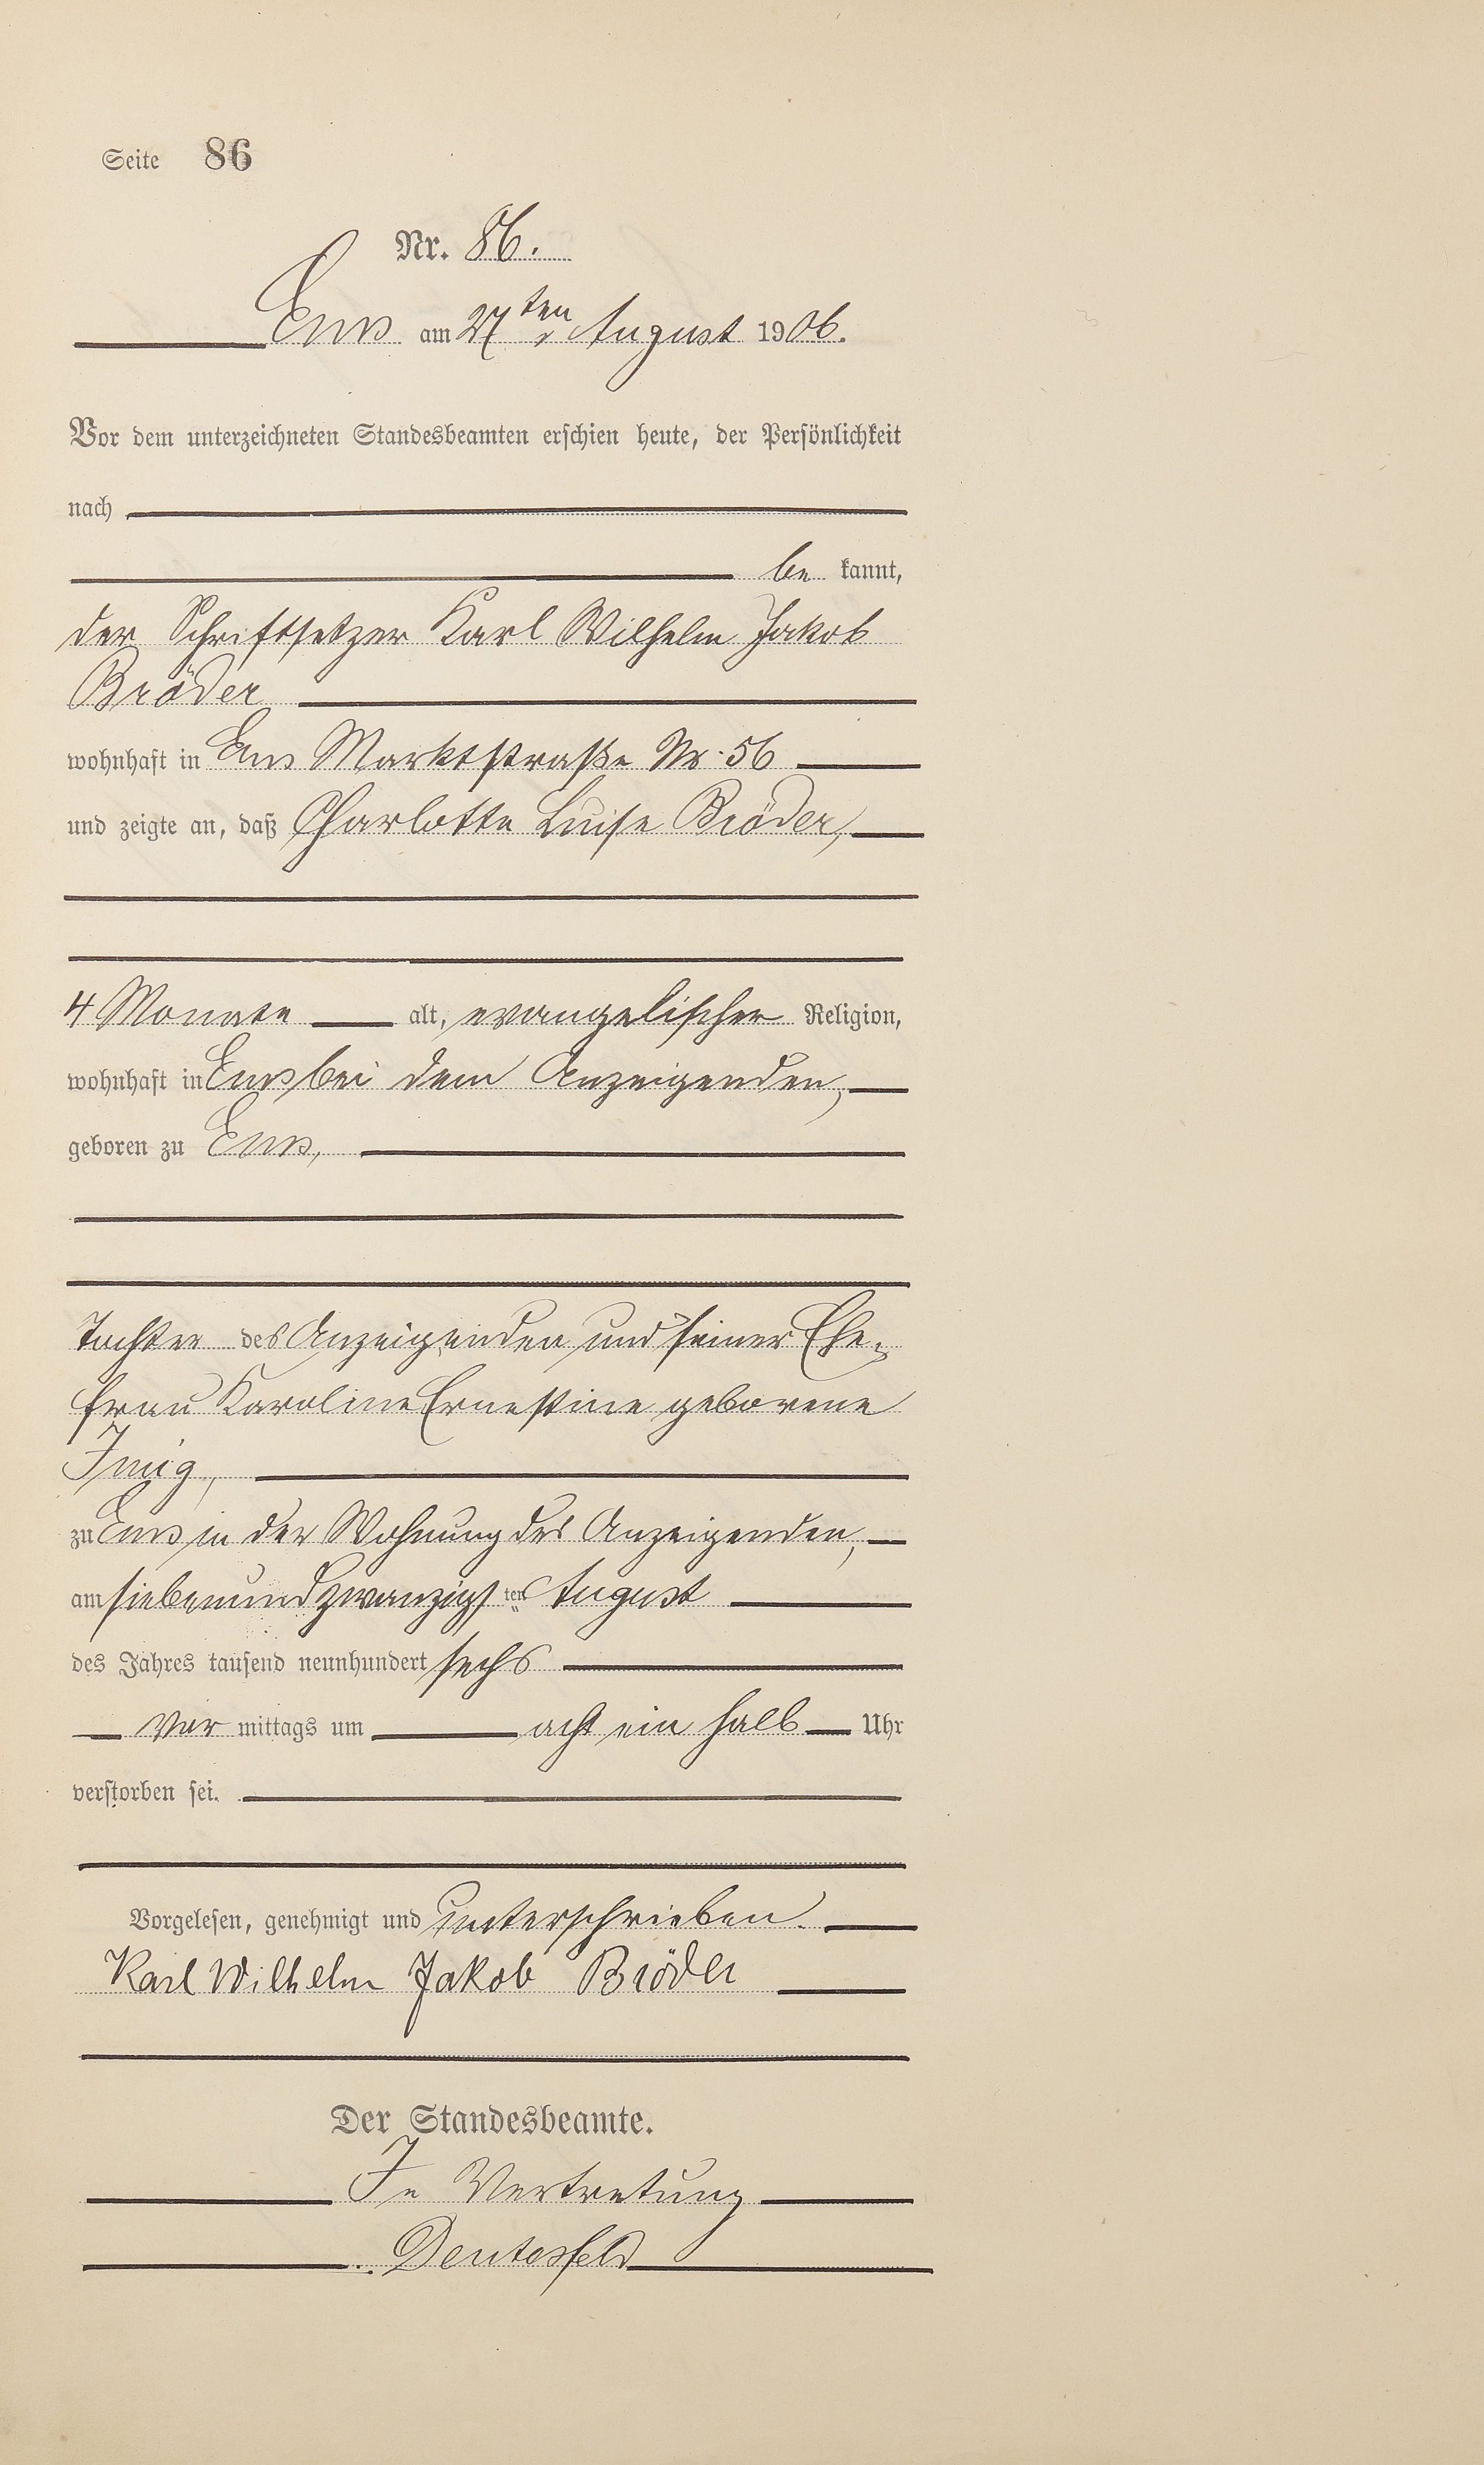 Seite 86
Nr. 86.
Ems am 27ten August 1906.
Vor dem unterzeichneten Standesbeamten erschien heute, der Persönlichkeit
nach
be kannt,
der Schriftsetzer Karl Wilhelm Jakob
Bröder
wohnhaft in Ems Marktstraße Nr. 56
und zeigte an, daß Charlotte Luise Bröder,
4 Monate alt, evangelischer Religion,
wohnhaft in Ems bei dem Anzeigenden,
geboren zu Ems,
Tochter des Anzeigenden und seiner Ehe-
frau Karoline Ernestine geborene
Imig,
zu Ems in der Wohnung des Anzeigenden,
am siebenundzwanzigsten August
des Jahres tausend neunhundert sechs
Vor mittags um acht ein halb Uhr
verstorben sei.
Vorgelesen, genehmigt und unterschrieben.
Karl Wilhelm Jakob Bröder
Der Standesbeamte.
In Vertretung